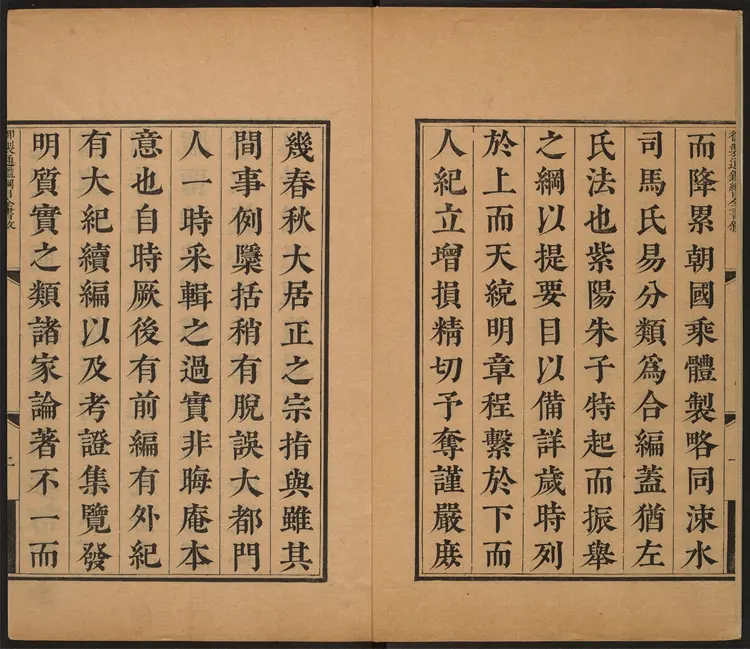 御製通鑑綱目全書敘
而降累朝國乘體製略同涑水
司馬氏易分類為合編蓋猶左
氏法也紫陽朱子特起而振舉
之綱以提要目以備詳歲時列
於上而天統明章程繫於下而
人紀立增損精切予奪謹嚴庶
一
幾春秋大居正之宗指與雖其
間事例檃括稍有脫誤大都門
人一時采輯之過實非晦庵本
意也自時厥後有前編有外紀
有大紀續編以及考證集覽發
明質實之類諸家論著不一而
御製通鑑綱目全書敘
二